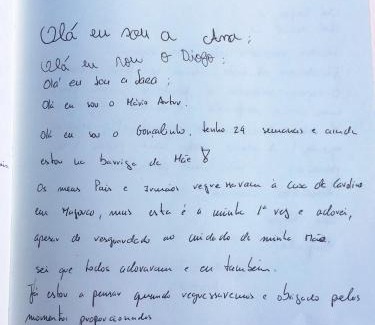 Olá eu sou a Ana;
Olá eu sou o Diogo;
Olá eu sou a Sara;
Olá eu sou o Mário Artur.
Olá eu sou o Goncalinho, tenho 24 semanas e ainda
estou na barriga da Mãe
Os meus Pais e Irmãos regressavam à Casa de
em, mas esta é a minha 1ª vez e adorei,
apesar de resguardado ao cuidado da minha Mãe
sei que todos adoraram e eu também.
Já estou a pensar quando regressaremos e obrigado pelos
momentos proporcionados